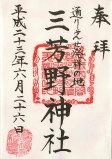 奉拝
通りゃんせ発祥の地
三芳野神社
平成二十三年六月二十六日